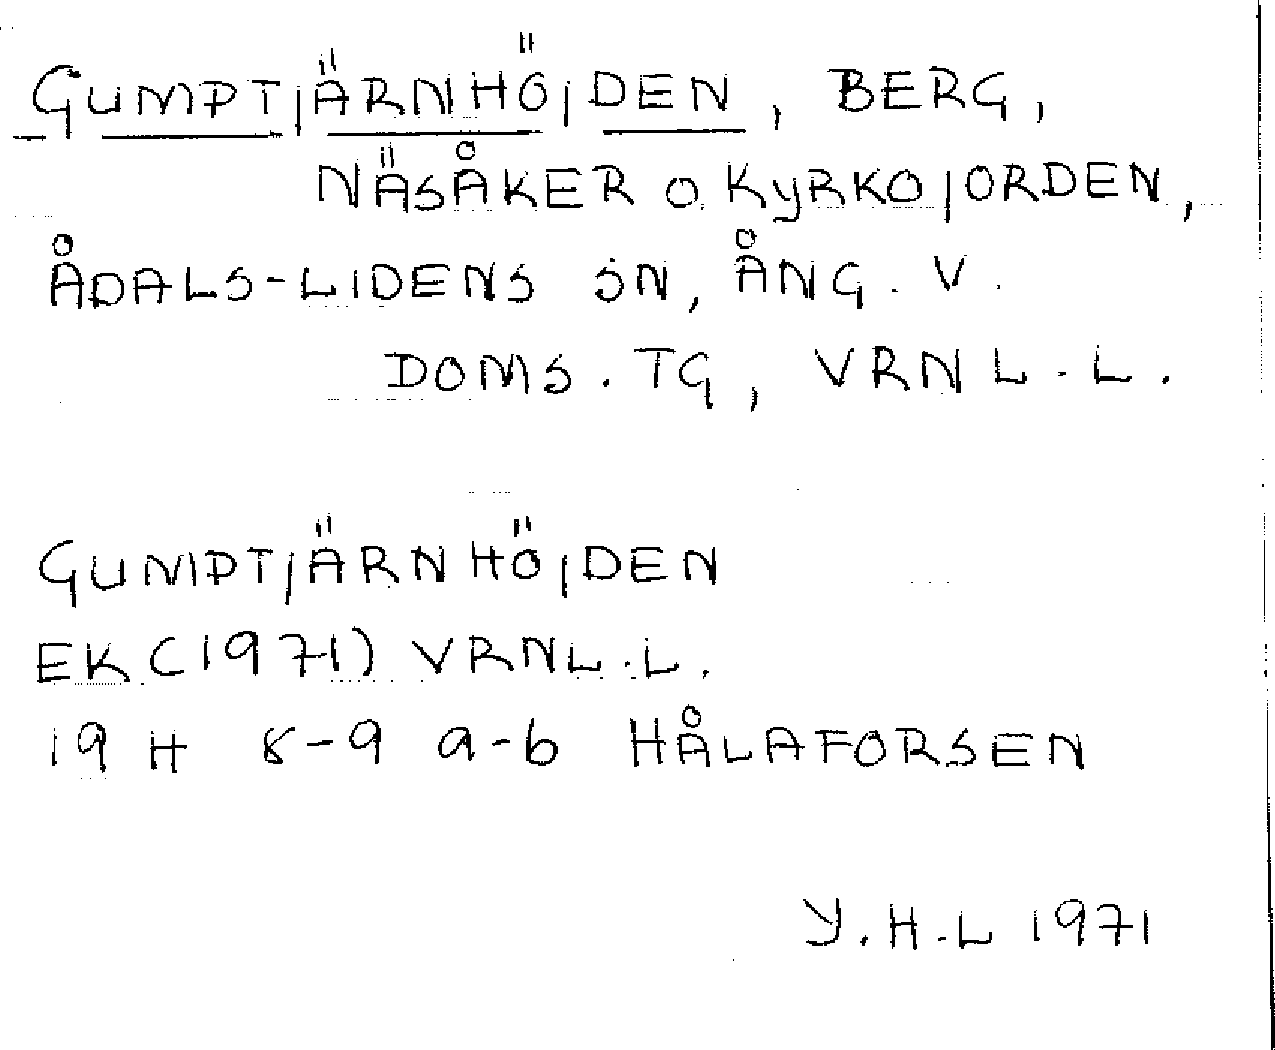 GUMPTJÄRNHÖJDEN, BERG,
NÄSÅKER O. KYRKOJORDEN,
ÅDALS-LIDENS SN, ÅNG. V.
DOMS. TG, VRNL.L.
GUMPTJÄRNHÖJDEN
EK (1971) VRNL.L.
19 H 8-9 a-b HÅLAFORSEN
Y.H.L 1971